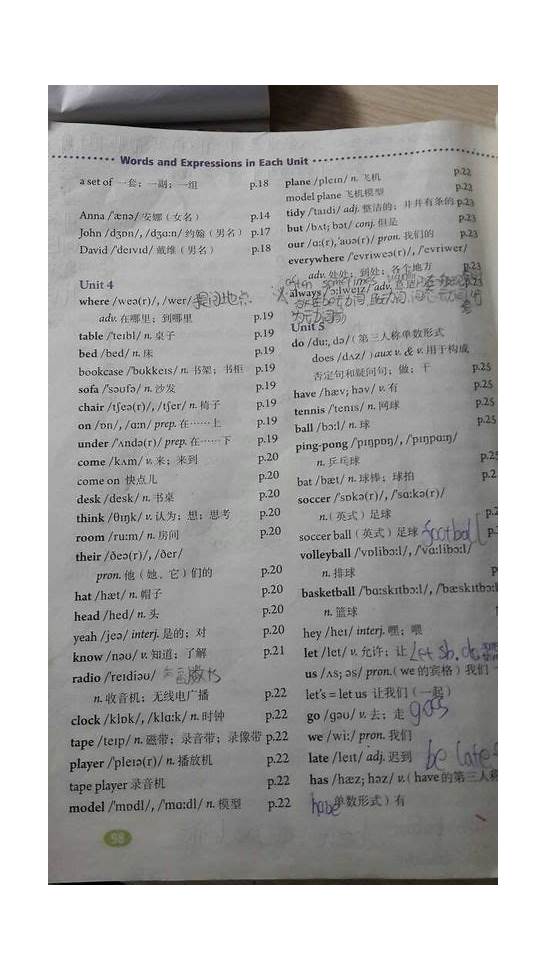 Words and Expressions in Each Unit
a set of 一套；一副；一组 p.18
Anna /'ænə/ 安娜（女名） p.14
John /dʒɒn/, /dʒɑ:n/ 约翰（男名） p.17
David /'deɪvɪd/ 戴维（男名） p.18
Unit 4
where /weə(r)/, /wer/ 提问地点
adv. 在哪里；到哪里 p.19
table /'teɪbl/ n. 桌子 p.19
bed /bed/ n. 床 p.19
bookcase /'bʊkkeɪs/ n. 书架；书柜 p.19
sofa /'səʊfə/ n. 沙发 p.19
chair /tʃeə(r)/, /tʃer/ n. 椅子 p.19
on /ɒn/, /ɑ:n/ prep. 在……上 p.19
under /'ʌndə(r)/ prep. 在……下 p.19
come /kʌm/ v. 来；来到 p.20
come on 快点儿 p.20
desk /desk/ n. 书桌 p.20
think /θɪŋk/ v. 认为；想；思考 p.20
room /ru:m/ n. 房间 p.20
their /ðeə(r)/, /ðer/
pron. 他（她、它）们的 p.20
hat /hæt/ n. 帽子 p.20
head /hed/ n. 头 p.20
yeah /jeə/ interj. 是的；对 p.20
know /nəʊ/ v. 知道；了解 p.21
radio /'reɪdiəʊ/
n. 收音机；无线电广播 p.22
clock /klɒk/, /klɑ:k/ n. 时钟 p.22
tape /teɪp/ n. 磁带；录音带；录像带 p.22
player /'pleɪə(r)/ n. 播放机 p.22
tape player 录音机 p.22
model /'mɒdl/, /'mɑ:dl/ n. 模型 p.22
98
plane /pleɪn/ n. 飞机 p.22
model plane 飞机模型 p.22
tidy /'taɪdi/ adj. 整洁的；井井有条的 p.23
but /bʌt; bət/ conj. 但是 p.23
our /ɑ:(r),'aʊə(r)/ pron. 我们的 p.23
everywhere /'evriweə(r)/, /'evriwer/
adv. 处处；到处；各个地方 p.23
often sometimes
always /'ɔ:lweɪz/ adv. 总是
Unit 5
do /du:, də/（第三人称单数形式
does /dʌz/ ) aux v. & v. 用于构成
否定句和疑问句；做；干 p.25
have /hæv; həv/ v. 有 p.25
tennis /'tenɪs/ n. 网球 p.25
ball /bɔ:l/ n. 球 p.25
ping-pong /'pɪŋpɒŋ/, /'pɪŋpɑ:ŋ/
n. 乒乓球 p.25
bat /bæt/ n. 球棒；球拍 p.2
soccer /'sɒkə(r)/, /'sɑ:kə(r)/
n.（英式）足球 p.2
soccer ball（英式）足球 football p.
volleyball /'vɒlibɔ:l/, /'vɑ:libɔ:l/
n. 排球 p
basketball /'bɑ:skɪtbɔ:l/, /'bæskɪtbɔ:l
n. 篮球
hey /heɪ/ interj. 嘿；喂
let /let/ v. 允许；让 Let sb. do
us /ʌs; əs/ pron.( we 的宾格）我们
let's = let us 让我们（一起）
go /gəʊ/ v. 去；走 goes
we /wi:/ pron. 我们
late /leɪt/ adj. 迟到 be late
has /hæz; həz/ v.( have 的第三人称
have 单数形式）有